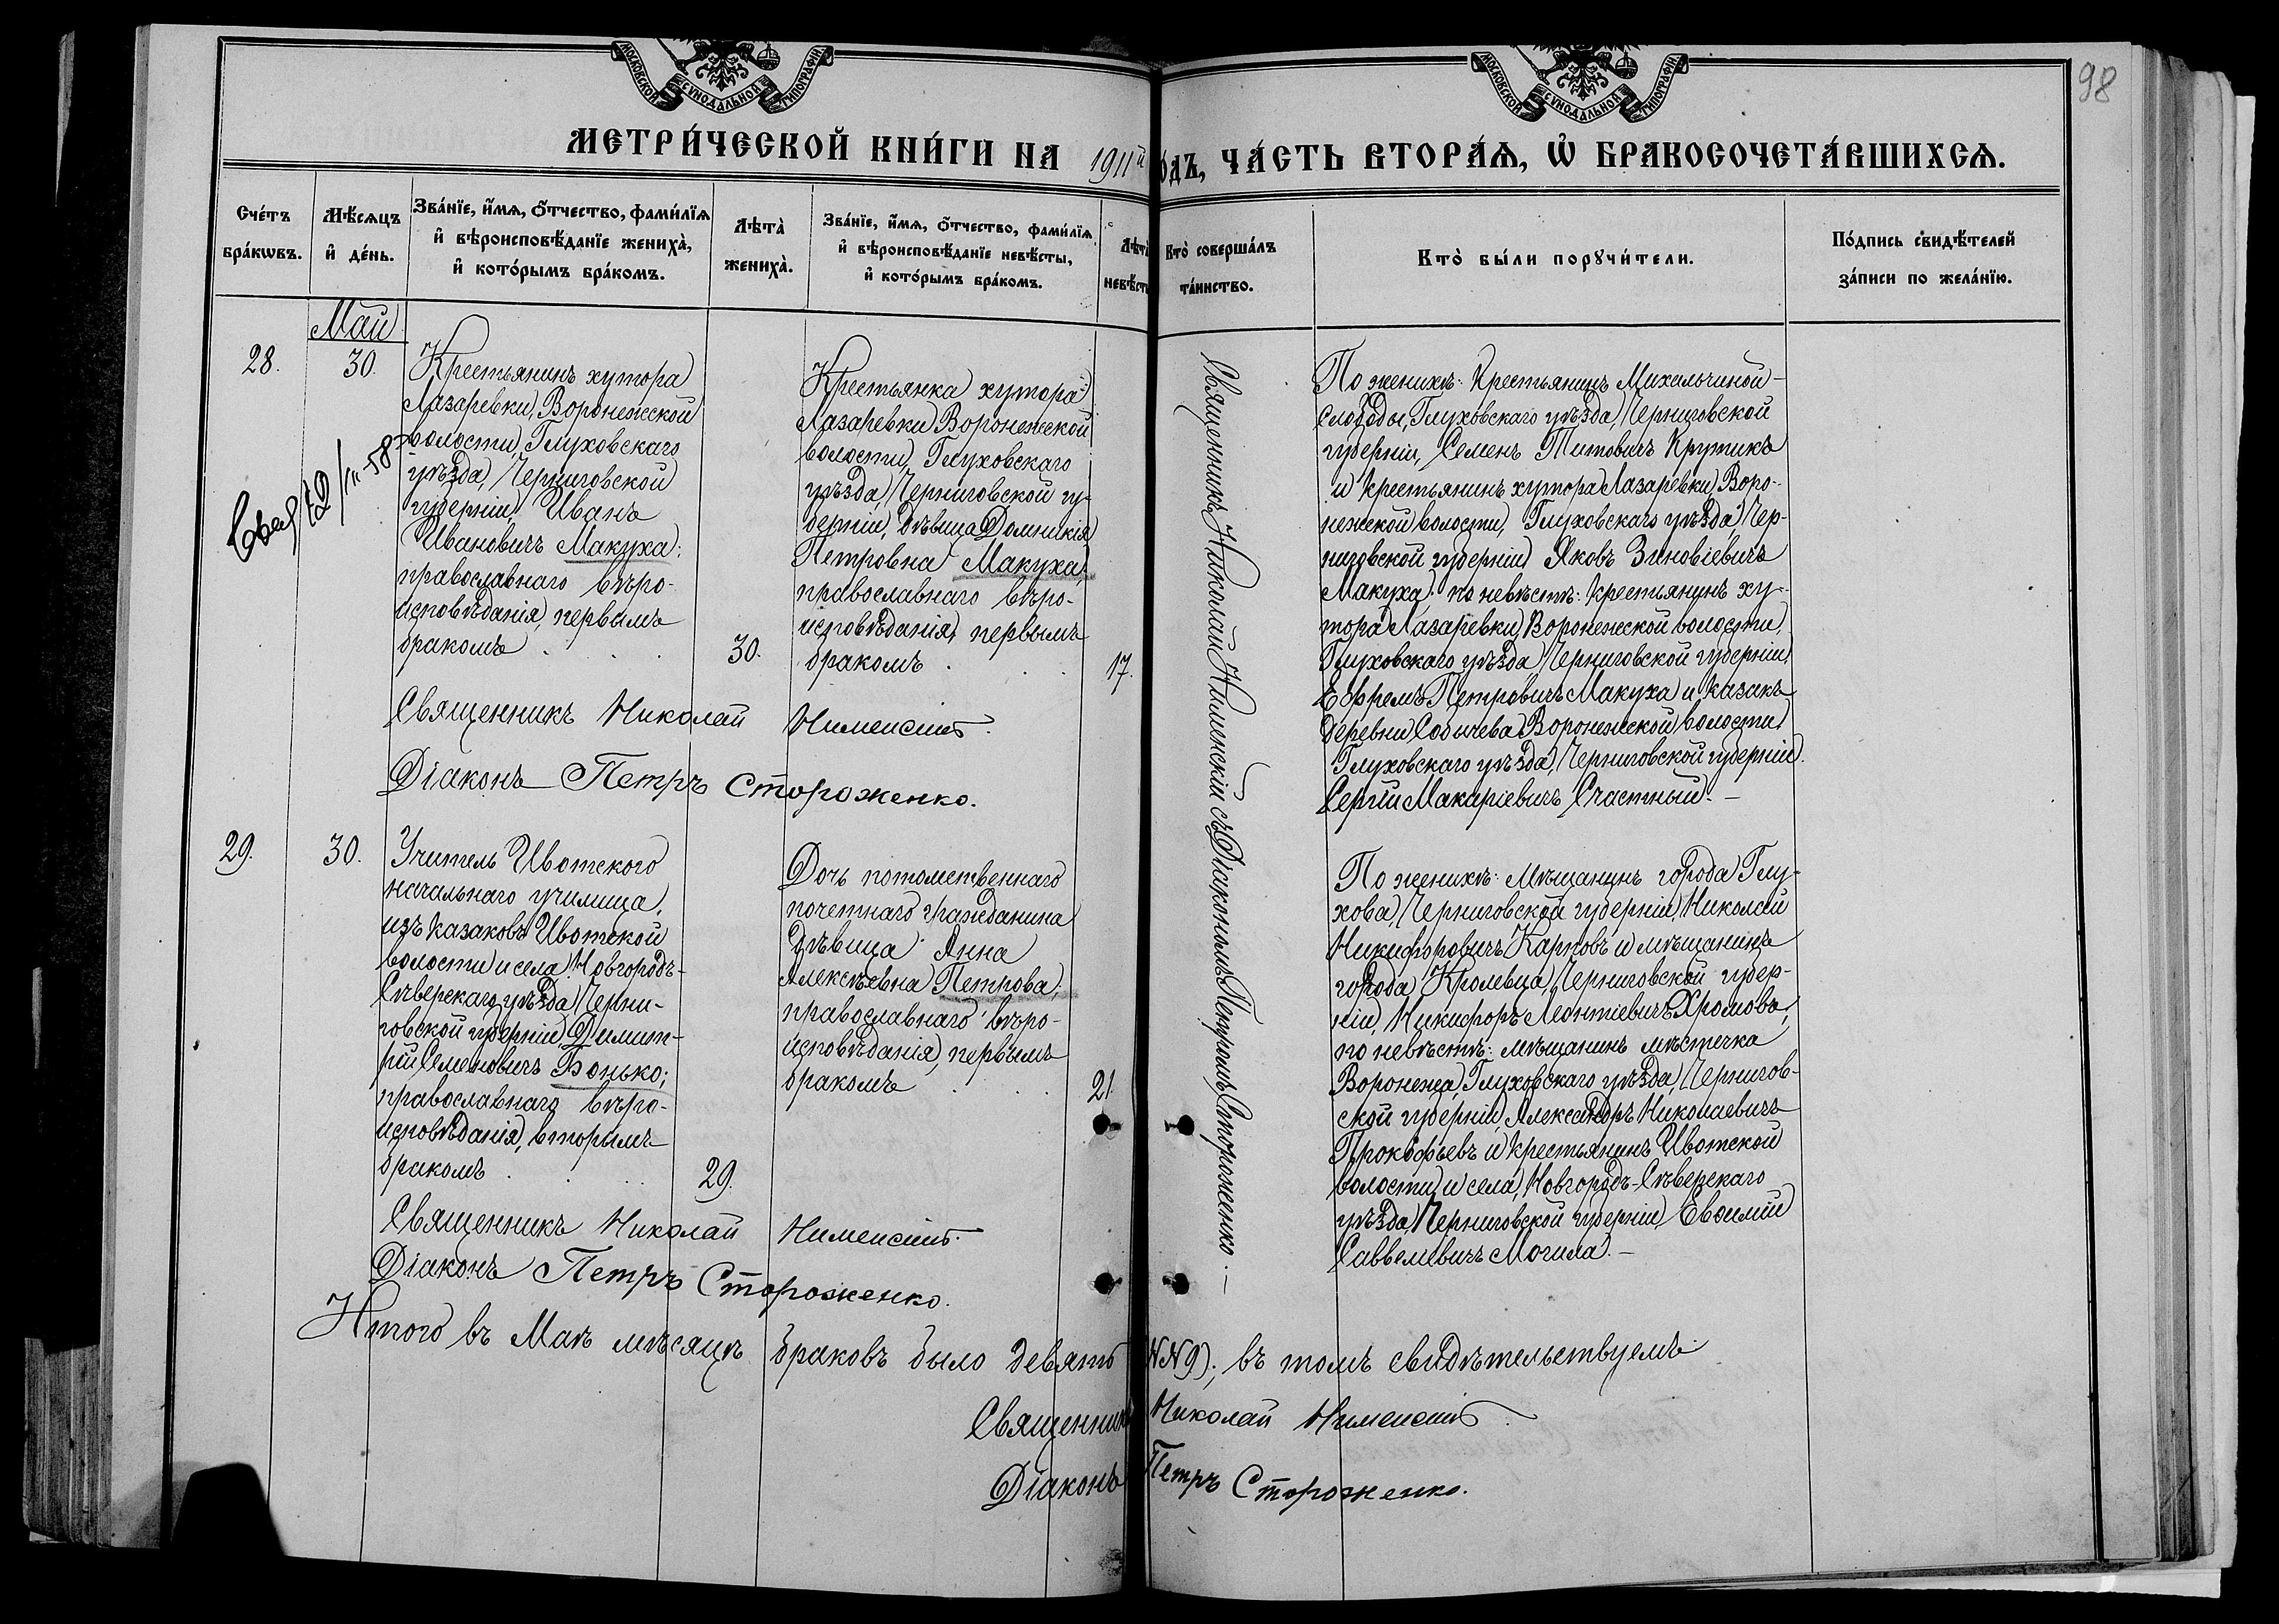 МОСКОВСКОЙ СѴНОДАЛЬНОЙ ТИПОГРАФІИ.
МОСКОВСКОЙ СѴНОДАЛЬНОЙ ТИПОГРАФІИ.
98
МЕТРИ́ЧЕСКОЙ КНИ́ГИ НА 1911й
О́ДЪ, ЧА́СТЬ ВТОРА́Ѧ, Ѡ҆ БРАКОСОЧЕТА́ВШИХСѦ.
Сче́тъ
бра́кѡвъ.
Мѣ́сѧцъ
и҆ де́нь.
Зва́нїе, и҆́мѧ, ѻ҆́тчество, фами́лїѧ
и҆ вѣроисповѣ́данїе жениха̀,
и҆ кото́рымъ бра́комъ.
Лѣта̀
жениха̀.
Зва́нїе, и҆́мѧ, ѻ҆́тчество, фами́лїѧ
и҆ вѣроисповѣ́данїе невѣ́сты,
и҆ кото́рымъ бра́комъ.
Лѣта
невѣ́сты
Кто̀ соверша́лъ
та́инство.
Кто̀ бы́ли порꙋчи́тели.
По́дпись свидѣ́телей
за́писи по жела́нїю.
Май
28.
30.
Крестьянинъ хутора
Лазаревки, Воронежской
волости, Глуховскаго
уѣзда, Черниговской
губерніи Иванъ
Ивановичъ Макуха;
православнаго вѣро-
исповѣданія, первымъ
бракомъ . . .
30.
Крестьянка хутора
Лазаревки Воронежской
волости, Глуховскаго
уѣзда, Черниговской гу-
берніи, дѣвица Домникія
Петровна Макуха;
православнаго вѣро-
исповѣданія, первымъ
бракомъ . .
17.
Священникъ Николай Нименскій съ Діакономъ Петромъ Стороженко. —
По женихѣ: Крестьянинъ Михальчиной-
слободы, Глуховскаго уѣзда, Черниговской
губерніи, Семенъ Титовичъ Крутикъ
и крестьянинъ хутора Лазаревки, Воро-
нежской волости, Глуховскаго уѣзда, Чер-
ниговской губерніи Яковъ Зиновіевичъ
Макуха; по невѣстѣ: крестьянинъ ху-
тора Лазаревки, Воронежской волости,
Глуховскаго уѣзда Черниговской губерніи
Ефремъ Петровичъ Макуха и казакъ
деревни Собычева Воронежской волости
Глуховскаго уѣзда, Черниговской губерніи
Сергій Макаріевичъ Счастный. —
Священникъ Николай Нименскій.
Діаконъ Петръ Стороженко.
29.
30.
Учитель Ивотского
начальнаго училища,
изъ казаковъ Ивотской
волости и села, Новгородъ-
Сѣверскаго уѣзда, Черни-
говской губерніи, Димит-
рій Семеновичъ Бонько;
православнаго вѣро-
исповѣданія, вторымъ
бракомъ . . .
29.
Дочь потомственнаго
почетнаго гражданина
дѣвица Анна
Алексѣевна Петрова;
православнаго вѣро-
исповѣданія, первымъ
бракомъ . .
21.
По женихѣ: Мѣщанинъ города Глу-
хова, Черниговской губерніи, Николай
Никифоровичъ Карповъ и мѣщанинъ
города Кролевца, Черниговской губер-
ніи, Никифоръ Леонтіевичъ Хромовъ;
по невѣстѣ: мѣщанинъ мѣстечка
Воронежа, Глуховскаго уѣзда, Чернигов-
ской губерніи, Александръ Николаевичъ
Прокофьевъ и крестьянинъ Ивотской
волости и села, Новгородъ-Сѣверскаго
уѣзда, Черниговской губерніи Евфимій
Савелиевичъ Могила. —
Священникъ Николай Нименскій.
Діаконъ Петръ Стороженко.
Итого въ Маѣ мѣсяцѣ браковъ было девять
№№ 9); въ томъ свидѣтельствуемъ
Священникъ Николай Нименскій.
Діаконъ Петръ Стороженко.